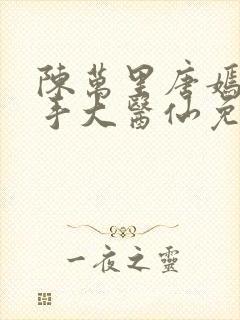 陳萬里唐嫣
手大醫仙免
一夜之靈